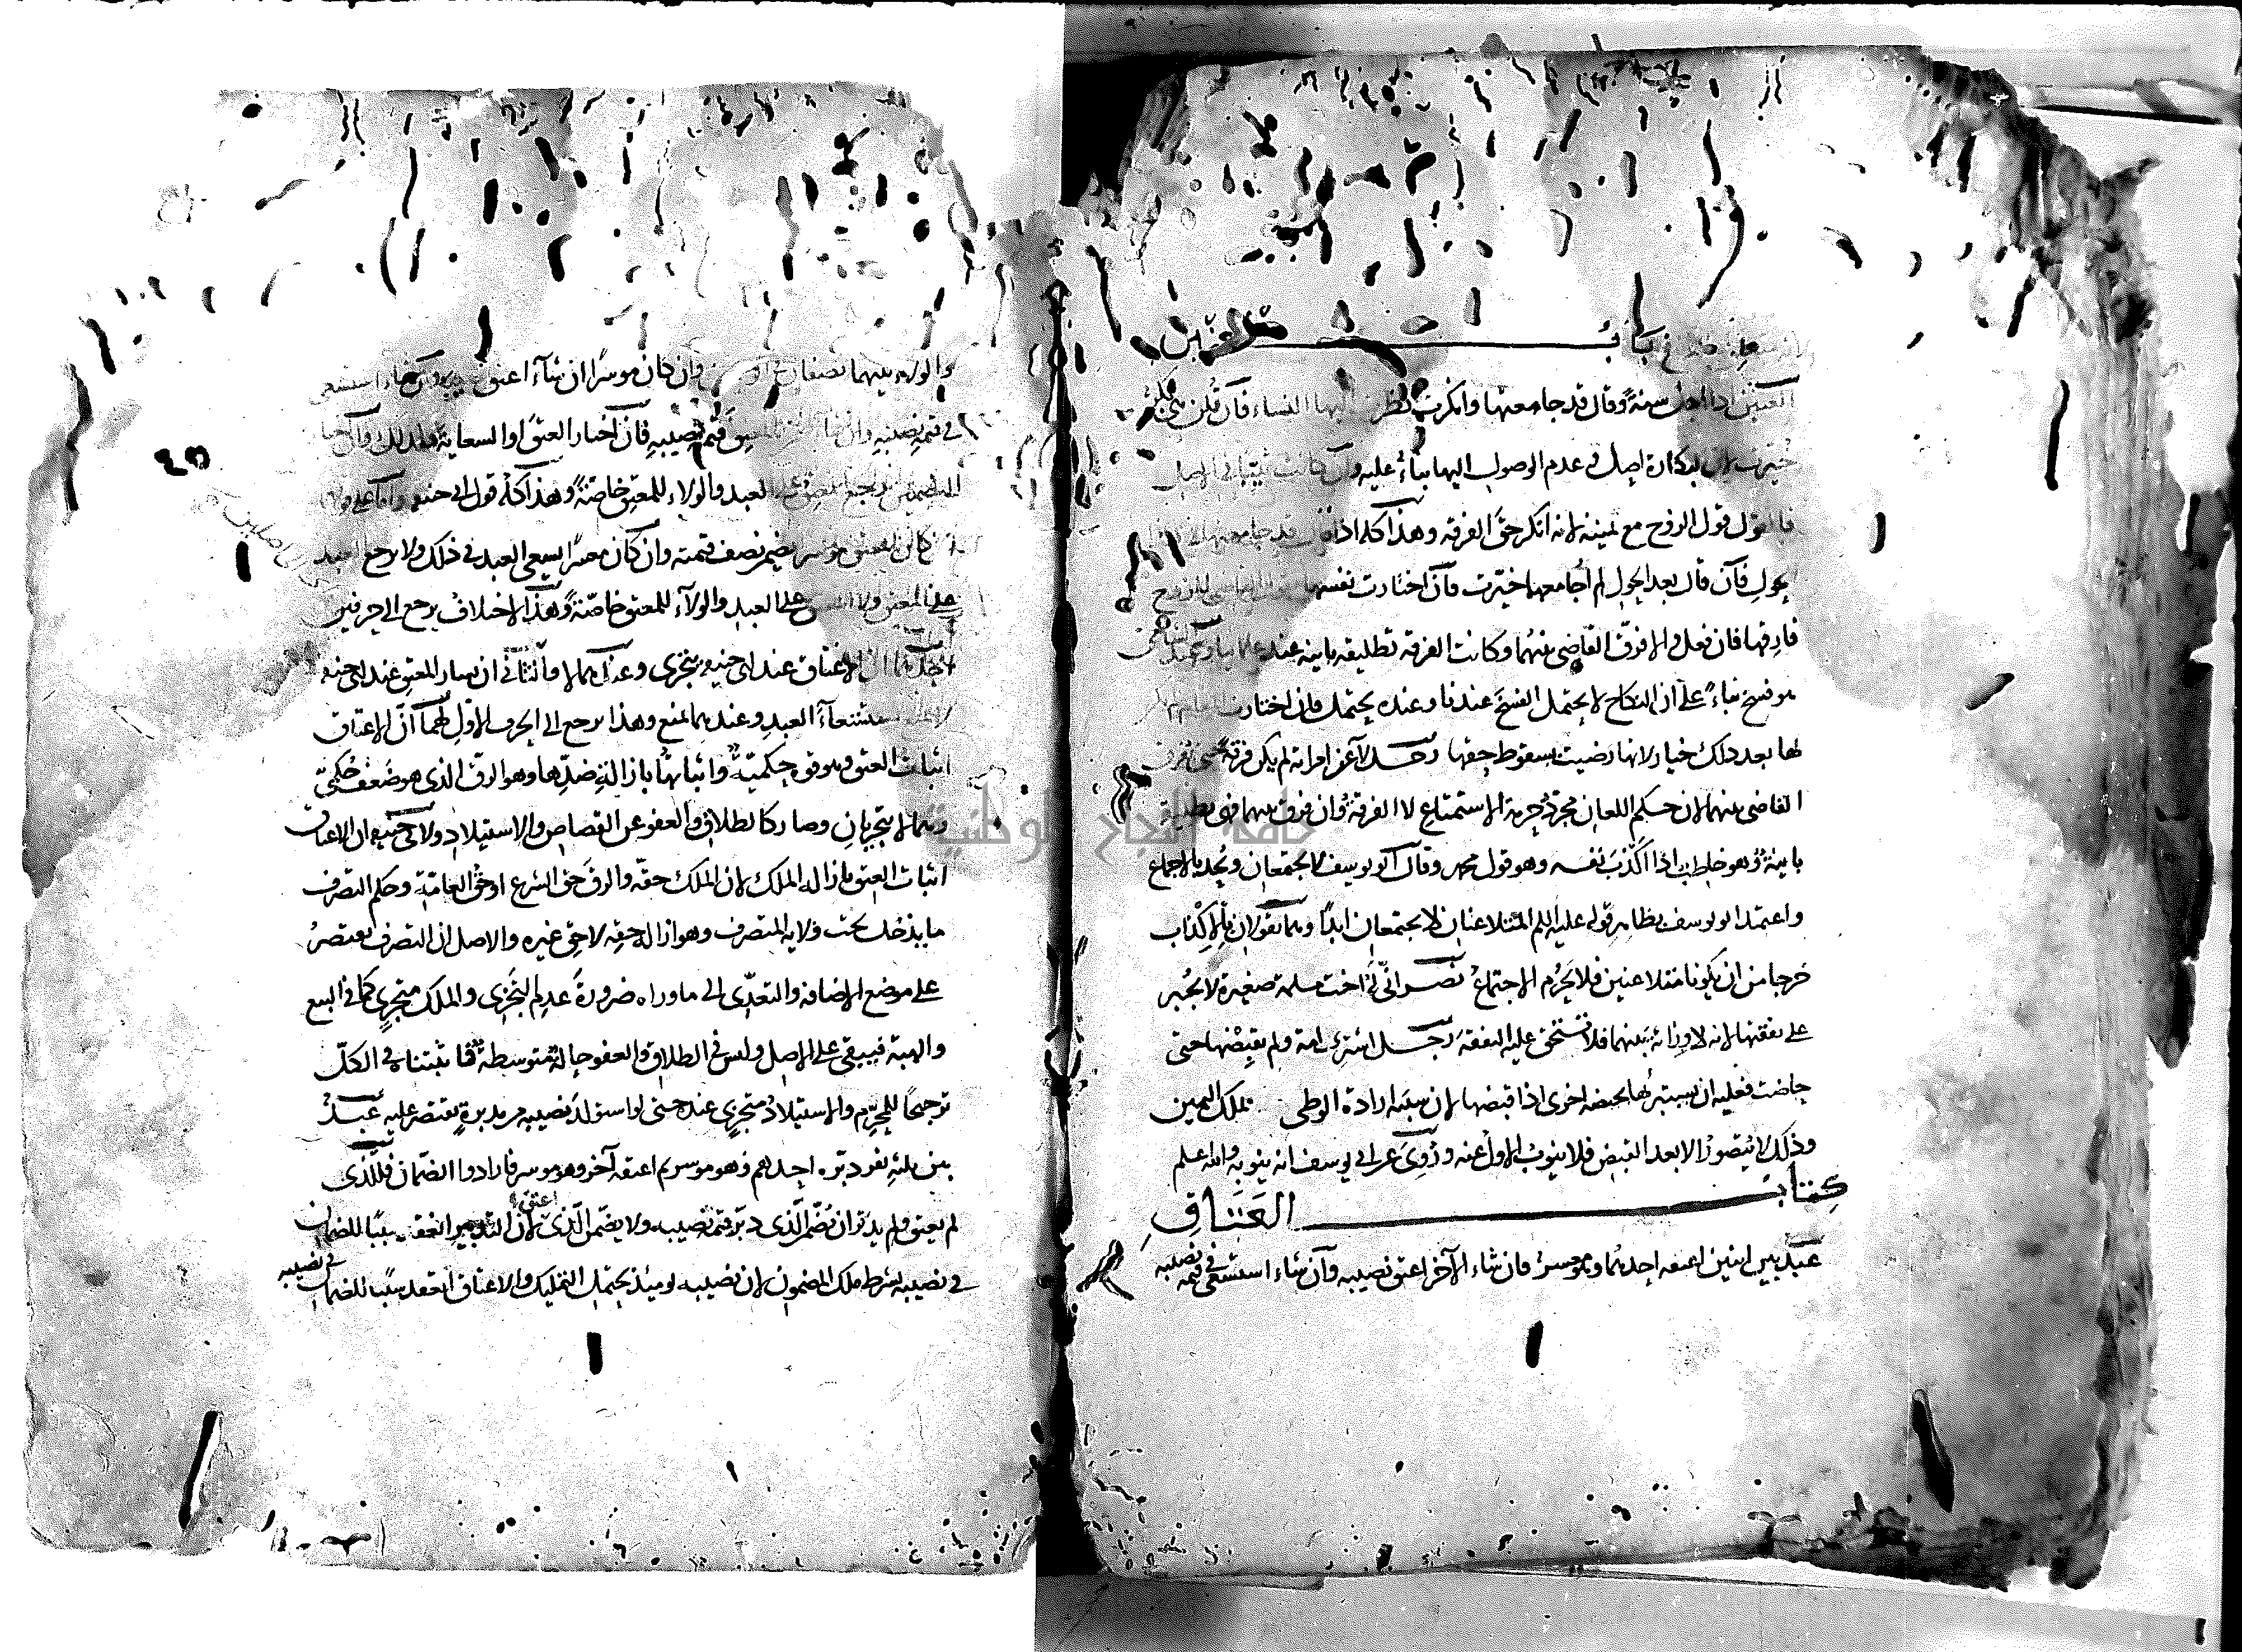 باب العنين
العنين اذا اجل سنة وقال قد جامعتها وانكرت نظرت اليها النساء فان قلن هي بكر
خيرت لان البكارة اصل في عدم الوصول اليها بناء عليه وان كانت ثيبا في الاصل
فالقول قول الزوج مع يمينه لانه انكر حق الفرقة وهذا كله اذا قال قد جامعتها في
الحول فان قال بعد الحول لم اجامعها خيرت فان اختارت نفسها القاضي للزوج
فارقها فان فعل والا فرق القاضي بينهما وكانت الفرقة تطليقة باينة عند علمائنا وعند الشافعي
هو فسخ بناء على ان النكاح لا يحتمل الفسخ عندنا وعنده يحتمل فان اختارت
لها بعد ذلك خيار لانها رضيت بسقوط حقها رجل لاعن امراته لم يكن فرقة حتى يفرق
القاضي بينهما لان حكم اللعان مجرد حرمة الاستمتاع لا الفرقة وان فرق بينهما فهي تطليقة
باينة وهو خاطب اذا اكذب نفسه وهو قول محمد وقال ابو يوسف لا يجتمعان ويحد بالاجماع
واعتمد ابو يوسف بظاهر قوله عليه السلم المتلاعنان لا يجتمعان ابدا وهما يقولان بالاكذاب
خرجا من ان يكونا متلاعنين فلا يحرم الاجتماع نصراني له اخت مسلمة صغيرة لا يجبر
على نفقتها لانه لا وراثة بينهما فلا تستحق عليه النفقة رجل اشترى امة ولم يقبضها حتى
حاضت فعليه ان يستبرئها بحيضة اخرى اذا قبضها لان سببه ارادة الوطى بملك اليمين
وذلك لا يتصور الا بعد القبض فلا ينوب الاول عنه وروى عن ابي يوسف انه ينوب والله اعلم
كتاب العتاق
عبد بين اثنين اعتقه احدهما وهو موسر فان شاء الآخر اعتق نصيبه وان شاء استسعى في قيمة نصيبه
والولاء بينهما نصفان وان كان موسرا ان شاء اعتق وان شاء استسعى
في قيمة نصيبه وان شاء ضمن المعتق قيمة نصيبه فان اختار العتق او السعاية
التضمين يرجع المعتق على العبد والولاء للمعتق خاصة وهذا كله قول ابي حنيفة واما على قولهما
ان كان المعتق موسرا يضمن نصف قيمته وان كان معسرا يسعى العبد في ذلك ولا يرجع العبد
على المعتق ولا المعتق على العبد والولاء للمعتق خاصة وهذا الاختلاف يرجع الى حرفين
احدهما ان الاعتاق عند ابي حنيفة يتجزى وعندهما لا والثاني ان يسار المعتق عند ابي حنيفة
لا يمنع استسعاء العبد وعندهما يمنع وهذا يرجع الى الحرف الاول لهما ان الاعتاق
اثبات العتق وهو قوة حكمية واثباتها بازالة ضدها وهو الرق الذي هو ضعف حكمي
وهما لا يتجزيان وصار كالطلاق والعفو عن القصاص والاستيلاد ولابي حنيفة ان الاعتاق
اثبات العتق بازالة الملك لان الملك حقه والرق حق الشرع او حق العامة وحكم التصرف
ما يدخل تحت ولاية المتصرف وهو ازالة حقه لا حق غيره والاصل ان التصرف يقتصر
على موضع الاضافة والتعدي الى ما وراه ضرورة عدم التجزي والملك متجزي كما في البيع
والهبة فيبقى على الاصل وليس في الطلاق والعفو حالة متوسطة فاثبتناه في الكل
ترجيحا للمحرم والاستيلاد متجزي عنده حتى لو استولد نصيبه من مدبرة يقتصر عليه عبد
بين ثلثة نفر دبره احدهم وهو موسر ثم اعتقه آخر وهو موسر فارادوا الضمان فللذي
لم يعتق ولم يدبر ان يضمن الذي دبر قيمة نصيبه ولا يضمن الذي اعتق لان التدبير انعقد سببا للضمان
في نصيبه بشرط ملك المضمون لان نصيبه يومئذ يحتمل التمليك والاعتاق انعقد سببا للضمان في نصيبه